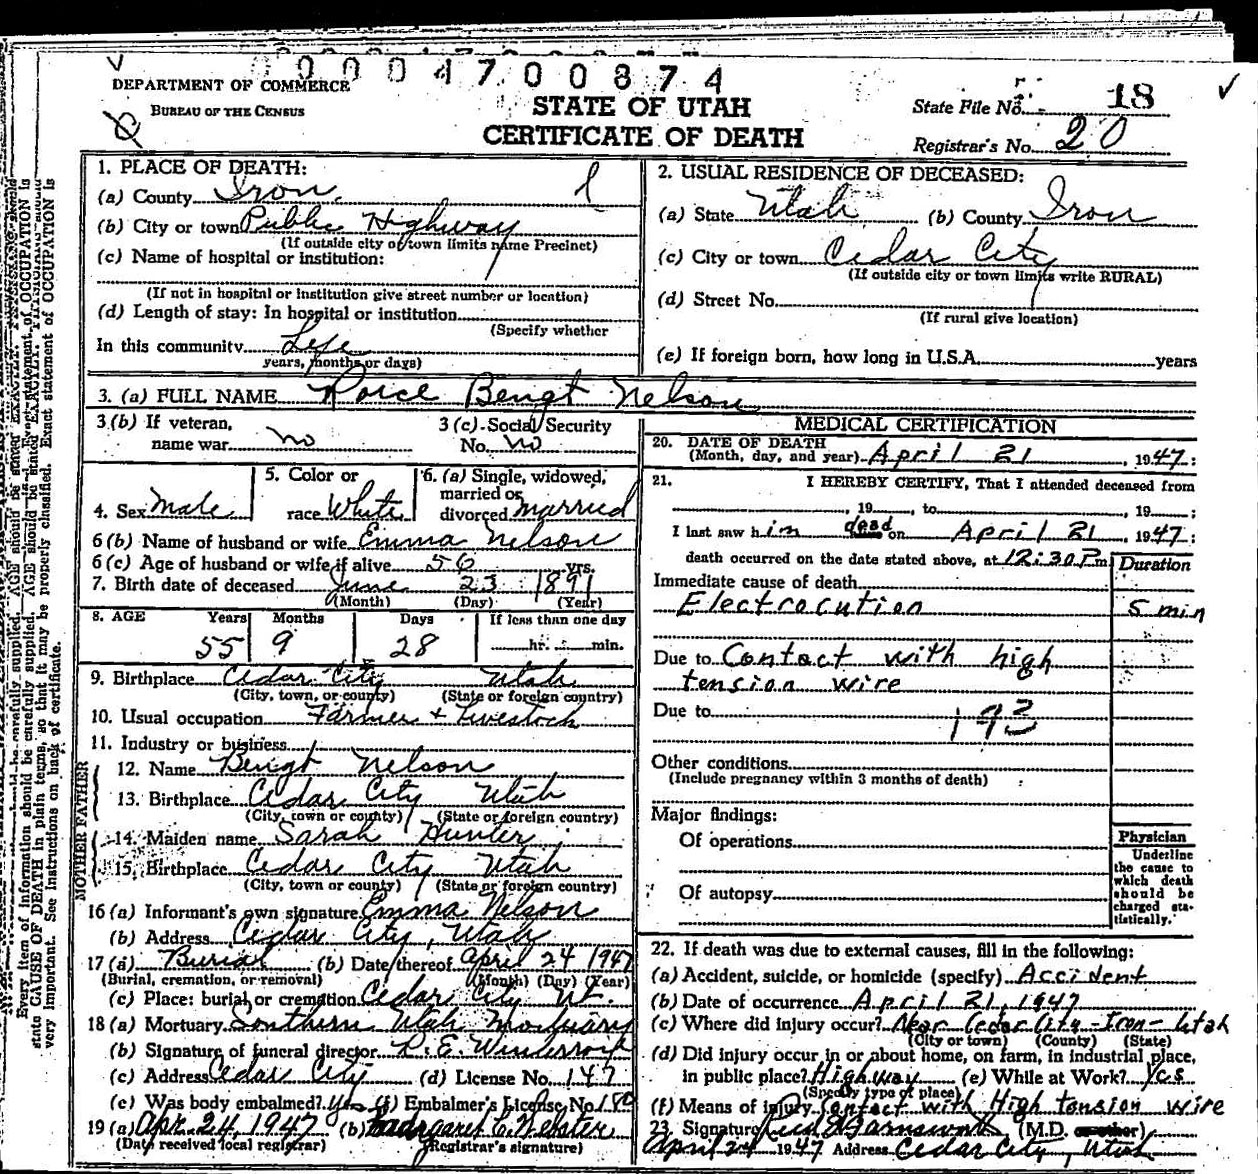 0004700874
DEPARTMENT OF COMMERCE
BUREAU OF THE CENSUS
STATE OF UTAH
CERTIFICATE OF DEATH
State File No. 18
Registrar's No. 20
1. PLACE OF DEATH:
(a) County Iron
(b) City or town Public Highway
(If outside city or town limits name Precinct)
(c) Name of hospital or institution:
(If not in hospital or institution give street number or location)
(d) Length of stay: In hospital or institution
(Specify whether
In this community Life
years, months or days)
2. USUAL RESIDENCE OF DECEASED:
(a) State Utah (b) County Iron
(c) City or town Cedar City
(If outside city or town limits write RURAL)
(d) Street No.
(If rural give location)
(e) If foreign born, how long in U.S.A. years
3. (a) FULL NAME Roice Bengt Nelson
3(b) If veteran, name war no
3(c) Social Security No. no
4. Sex Male
5. Color or race White
6. (a) Single, widowed, married or divorced married
6(b) Name of husband or wife Emma Nelson
6(c) Age of husband or wife if alive 56 yrs.
7. Birth date of deceased June 23 1891
(Month) (Day) (Year)
8. AGE Years Months Days If less than one day
55 9 28 hr. min.
9. Birthplace Cedar City Utah
(City, town, or county) (State or foreign country)
10. Usual occupation Farmer + Livestock
11. Industry or business
FATHER
12. Name Bengt Nelson
13. Birthplace Cedar City Utah
(City, town or county) (State or foreign country)
MOTHER
14. Maiden name Sarah Hunter
15. Birthplace Cedar City Utah
(City, town or county) (State or foreign country)
16(a) Informant's own signature Emma Nelson
(b) Address Cedar City, Utah
17(a) Burial (b) Date thereof April 24 1947
(Burial, cremation, or removal) (Month) (Day) (Year)
(c) Place: burial or cremation Cedar City Ut.
18(a) Mortuary Southern Utah Mortuary
(b) Signature of funeral director
(c) Address Cedar City (d) License No. 147
(e) Was body embalmed? Yes (f) Embalmer's License No. 180
19(a) Apr. 24, 1947 (b) Margaret C. Webster
(Date received local registrar) (Registrar's signature)
MEDICAL CERTIFICATION
20. DATE OF DEATH
(Month, day, and year) April 21, 1947:
21. I HEREBY CERTIFY, That I attended deceased from
, 19 , to , 19 ;
I last saw him dead on April 21, 1947:
death occurred on the date stated above, at 12:30 P m
Duration
Immediate cause of death
Electrocution 5 min
Due to Contact with high
tension wire
Due to
193
Other conditions
(Include pregnancy within 3 months of death)
Major findings:
Of operations
Of autopsy
Physician
Underline the cause to which death should be charged statistically.
22. If death was due to external causes, fill in the following:
(a) Accident, suicide, or homicide (specify) Accident
(b) Date of occurrence April 21, 1947
(c) Where did injury occur? Near Cedar City - Iron - Utah
(City or town) (County) (State)
(d) Did injury occur in or about home, on farm, in industrial place,
in public place? Highway (e) While at Work? Yes
(Specify type of place)
(f) Means of injury Contact with High tension wire
23. Signature (M.D.
April 24 1947 Address Cedar City, Utah
Every item of information should be carefully supplied. AGE should be stated EXACTLY.
state CAUSE OF DEATH in plain terms, so that it may be properly classified. Exact statement of OCCUPATION is
very important. See instructions on back of certificate.